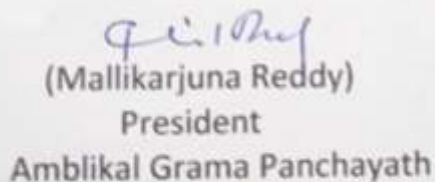 (Mallikarjuna Reddy)
President
Amblikal Grama Panchayath